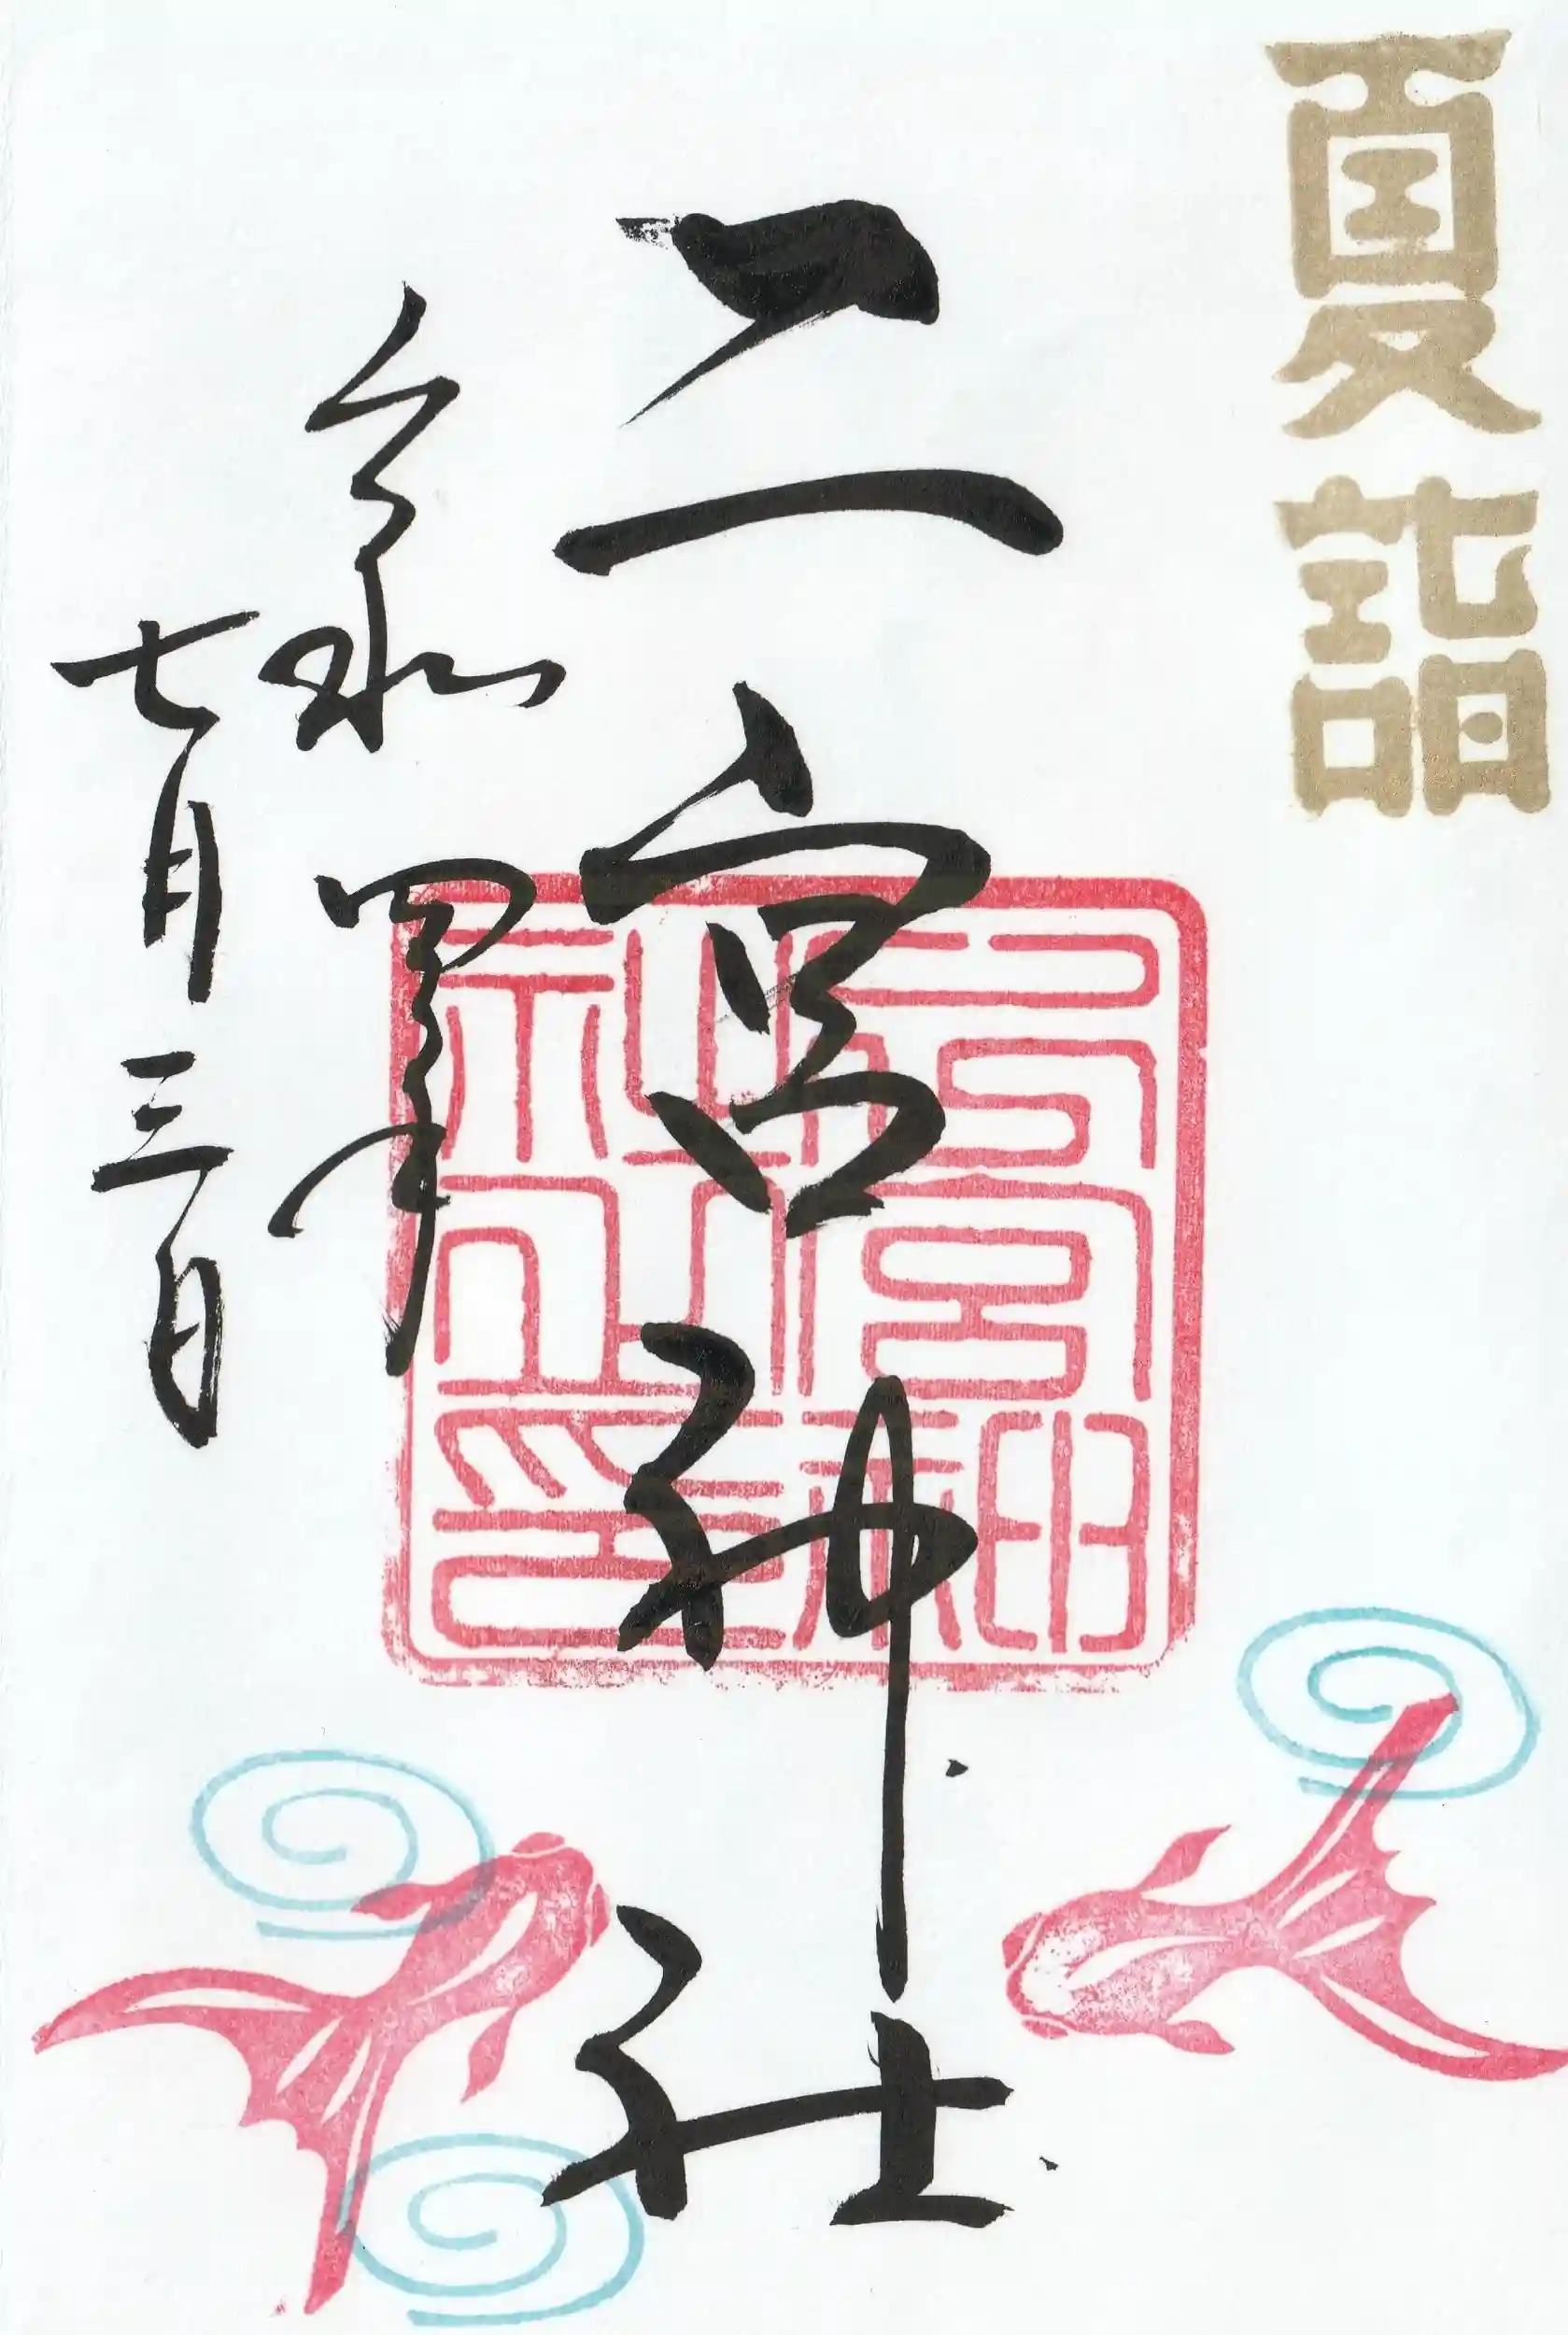 夏詣
二宮神社
令和四年
七月三日
宮神
社之印